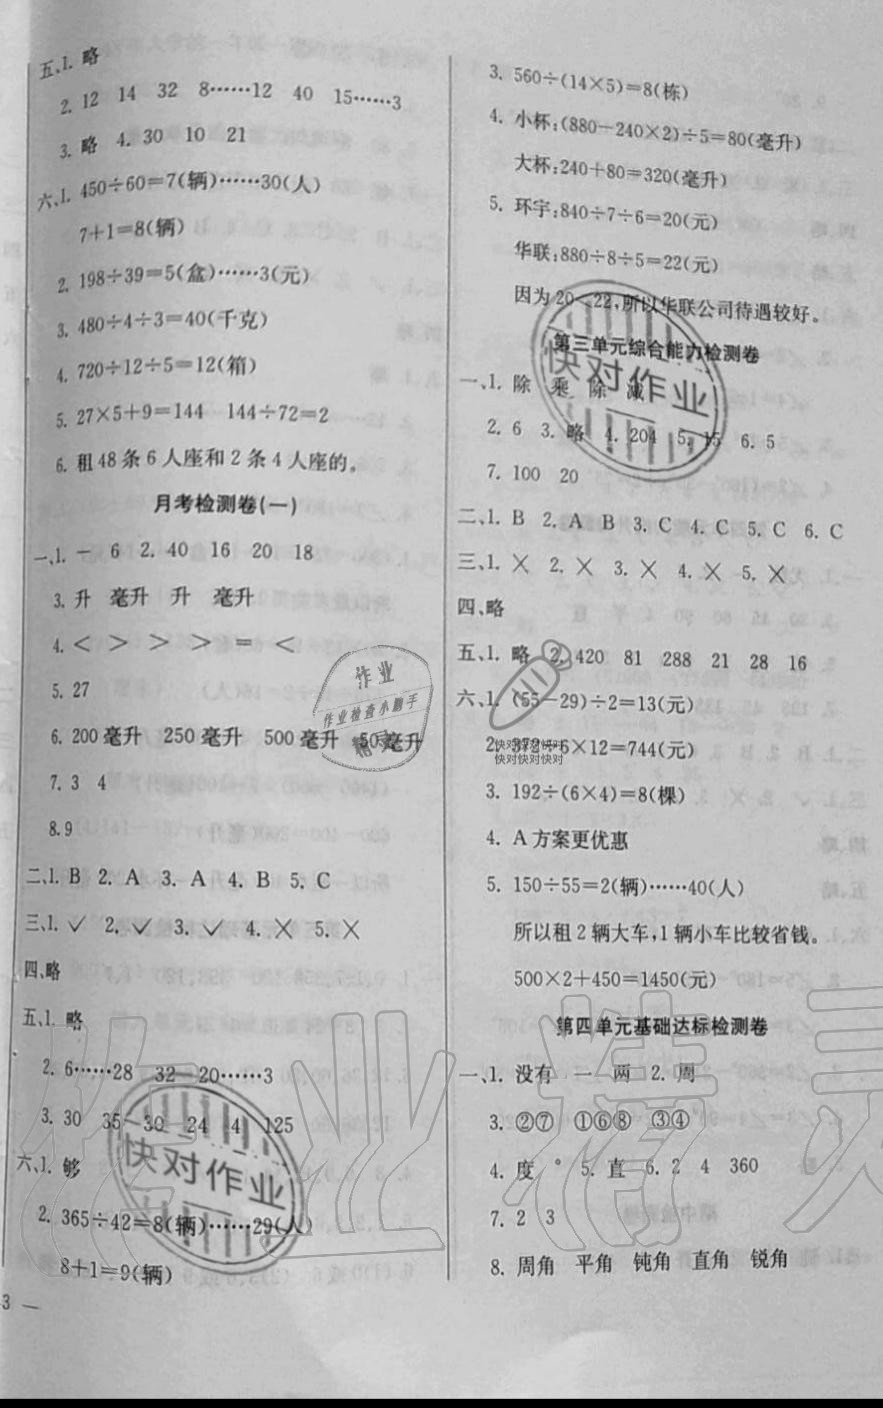 五、1. 略
2. 12 14 32 8……12 40 15……3
3. 略 4. 30 10 21
六、1. 450÷60=7(辆)……30(人)
7+1=8(辆)
2. 198÷39=5(盒)……3(元)
3. 480÷4÷3=40(千克)
4. 720÷12÷5=12(箱)
5. 27×5+9=144 144÷72=2
6. 租48条6人座和2条4人座的。
月考检测卷(一)
一、1. 一 6 2. 40 16 20 18
3. 升 毫升 升 毫升
4. < > > > = <
5. 27
6. 200毫升 250毫升 500毫升 50毫升
7. 3 4
8. 9
二、1. B 2. A 3. A 4. B 5. C
三、1. ✓ 2. ✓ 3. ✓ 4. × 5. ×
四、略
五、1. 略
2. 6……28 32 20……3
3. 30 35 30 24 4 125
六、1. 够
2. 365÷42=8(辆)……29(人)
8+1=9(辆)
3
3. 560÷(14×5)=8(栋)
4. 小杯:(880-240×2)÷5=80(毫升)
大杯:240+80=320(毫升)
5. 环宇:840÷7÷6=20(元)
华联:880÷8÷5=22(元)
因为20<22,所以华联公司待遇较好。
第三单元综合能力检测卷
一、1. 除 乘 除 减
2. 6 3. 略 4. 204 5. 15 6. 5
7. 100 20
二、1. B 2. A B 3. C 4. C 5. C 6. C
三、1. × 2. × 3. × 4. × 5. ×
四、略
五、1. 略 2. 420 81 288 21 28 16
六、1. (55-29)÷2=13(元)
2. 372÷6×12=744(元)
3. 192÷(6×4)=8(棵)
4. A方案更优惠
5. 150÷55=2(辆)……40(人)
所以租2辆大车,1辆小车比较省钱。
500×2+450=1450(元)
第四单元基础达标检测卷
一、1. 没有 一 两 2. 周
3. ②⑦ ①⑥⑧ ③④
4. 度 ° 5. 直 6. 2 4 360
7. 2 3
8. 周角 平角 钝角 直角 锐角
快对作业
作业
作业检查小助手
快对快对快对
快对快对快对
快对作业
作业精灵